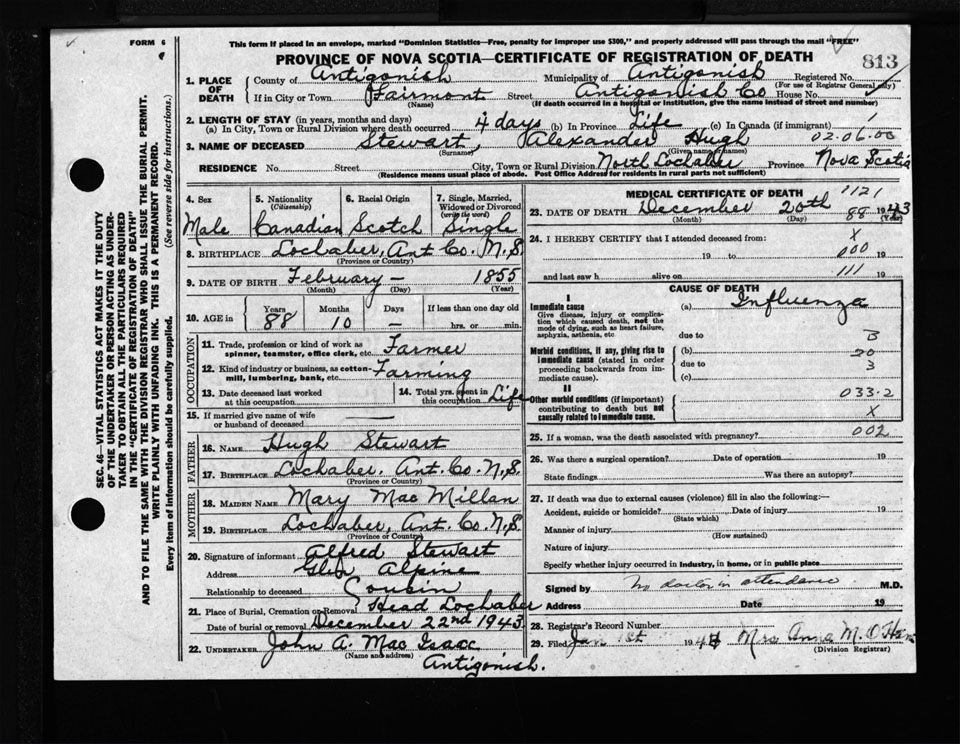 FORM 6
This form if placed in an envelope, marked "Dominion Statistics—Free, penalty for improper use $300," and properly addressed will pass through the mail "FREE"
PROVINCE OF NOVA SCOTIA—CERTIFICATE OF REGISTRATION OF DEATH
813
1. PLACE OF DEATH
County of Antigonish Municipality of Antigonish Registered No.
(For use of Registrar General only)
If in City or Town Fairmont Street Antigonish Co House No.
(Name) (If death occurred in a hospital or institution, give the name instead of street and number)
2. LENGTH OF STAY (in years, months and days)
(a) In City, Town or Rural Division where death occurred 4 days (b) In Province Life (c) In Canada (if immigrant) 1
02.06.00
3. NAME OF DECEASED Stewart, Alexander Hugh
(Surname) (Given name or names)
RESIDENCE No. Street City, Town or Rural Division North Lochaber Province Nova Scotia
(Residence means usual place of abode. Post Office Address for residents in rural parts not sufficient)
4. Sex
Male
5. Nationality
(Citizenship)
Canadian
6. Racial Origin
Scotch
7. Single, Married, Widowed or Divorced
(write the word)
Single
8. BIRTHPLACE Lochaber, Ant Co. N.S.
(Province or Country)
9. DATE OF BIRTH February – 1855
(Month) (Day) (Year)
10. AGE in
Years Months Days If less than one day old
88 10 – hrs. or min.
OCCUPATION
11. Trade, profession or kind of work as spinner, teamster, office clerk, etc. Farmer
12. Kind of industry or business, as cotton-mill, lumbering, bank, etc. Farming
13. Date deceased last worked at this occupation
14. Total yrs. spent in this occupation Life
15. If married give name of wife or husband of deceased
FATHER
16. NAME Hugh Stewart
17. BIRTHPLACE Lochaber, Ant. Co. N.S.
(Province or Country)
MOTHER
18. MAIDEN NAME Mary Mac Millan
19. BIRTHPLACE Lochaber, Ant. Co. N.S.
(Province or Country)
20. Signature of informant Alfred Stewart
Address Glen Alpine
Relationship to deceased Cousin
21. Place of Burial, Cremation or Removal Head Lochaber
Date of burial or removal December 22nd 1943
22. UNDERTAKER John A. Mac Isaac
(Name and address)
Antigonish.
MEDICAL CERTIFICATE OF DEATH
1121
23. DATE OF DEATH December 20th 1943
88
(Month) (Day) (Year)
24. I HEREBY CERTIFY that I attended deceased from: X
19 to 000 19
and last saw h alive on 111 19
CAUSE OF DEATH
I
Immediate cause
Give disease, injury or complication which caused death, not the mode of dying, such as heart failure, asphyxia, asthenia, etc
(a) Influenza
due to B
Morbid conditions, if any, giving rise to immediate cause (stated in order proceeding backwards from immediate cause).
(b) 20
due to 3
(c)
II
Other morbid conditions (if important) contributing to death but not causally related to immediate cause.
033.2
X
25. If a woman, was the death associated with pregnancy? 002
26. Was there a surgical operation? Date of operation 19
State findings Was there an autopsy?
27. If death was due to external causes (violence) fill in also the following:—
Accident, suicide or homicide? Date of injury 19
(State which)
Manner of injury
(How sustained)
Nature of injury
Specify whether injury occurred in industry, in home, or in public place
Signed by no doctor in attendance M.D.
Address Date 19
28. Registrar's Record Number
29. Filed Jan 1st 194 Mrs Anna M. O'
(Division Registrar)
SEC. 46—VITAL STATISTICS ACT MAKES IT THE DUTY
OF THE UNDERTAKER OR PERSON ACTING AS UNDER-
TAKER TO OBTAIN ALL THE PARTICULARS REQUIRED
IN THE "CERTIFICATE OF REGISTRATION OF DEATH"
AND TO FILE THE SAME WITH THE DIVISION REGISTRAR WHO SHALL ISSUE THE BURIAL PERMIT.
WRITE PLAINLY WITH UNFADING INK. THIS IS A PERMANENT RECORD.
Every item of information should be carefully supplied. (See reverse side for instructions.)